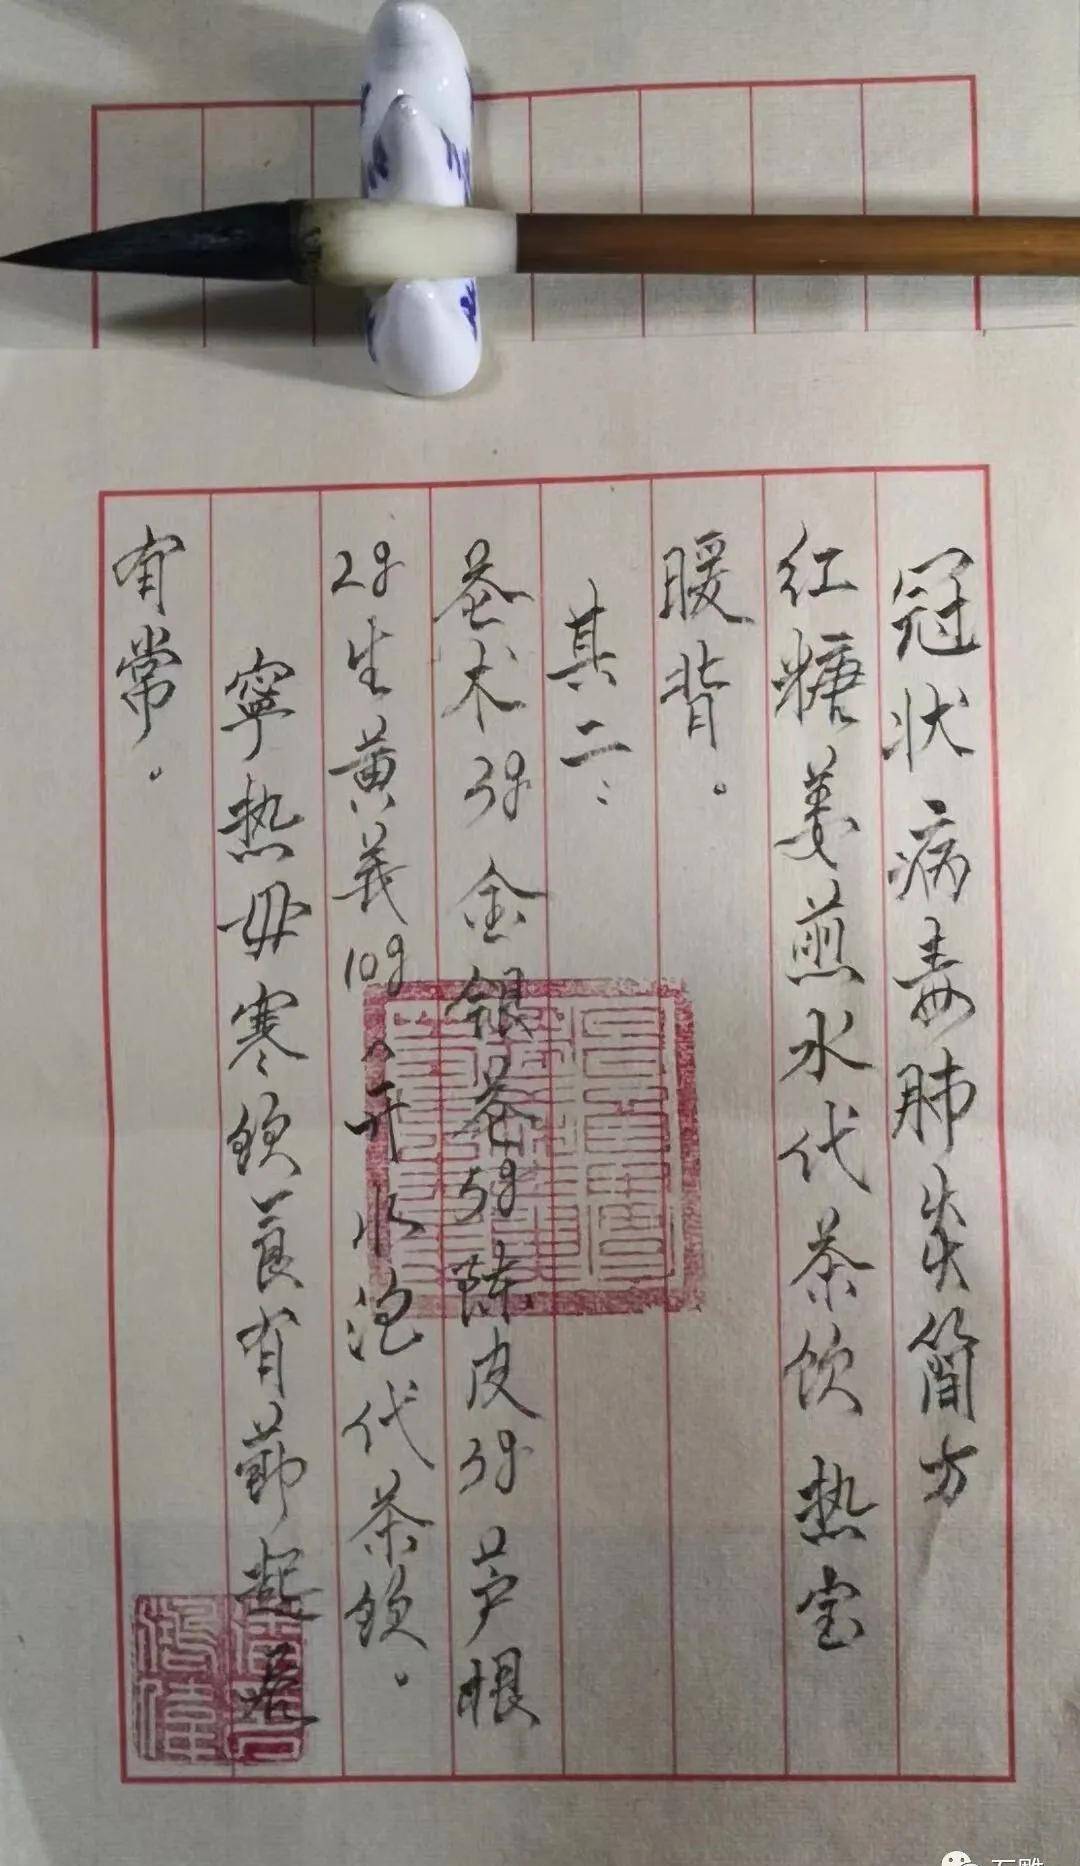 冠状病毒肺炎简方
红糖姜煎水代茶饮热宝
暖背。
其二：
苍术3g金银花5g陈皮3g芦根
2g生黄芪10g 开水泡代茶饮。
寧热毋寒饮食有节起居
有常。